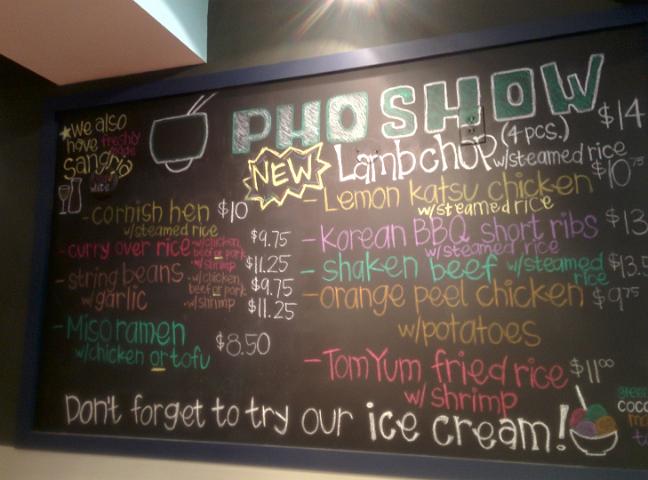 PHO SHOW
we also
have freshly
made
sangria
NEW
Lamb chop (4 pcs.) $14
w/steamed rice
Lemon katsu chicken $10.75
w/steamed rice
- Korean BBQ short ribs $13
w/steamed rice
- shaken beef w/steamed rice $13.5
- orange peel chicken $9.75
w/potatoes
- Tom Yum fried rice $11.00
w/shrimp
- cornish hen $10
w/steamed rice
- curry over rice - w/chicken, beef or pork $9.75
- w/shrimp $11.25
- string beans w/garlic - w/chicken, beef or pork $9.75
- w/shrimp $11.25
- Miso ramen $8.50
w/chicken or tofu
Don't forget to try our ice cream!